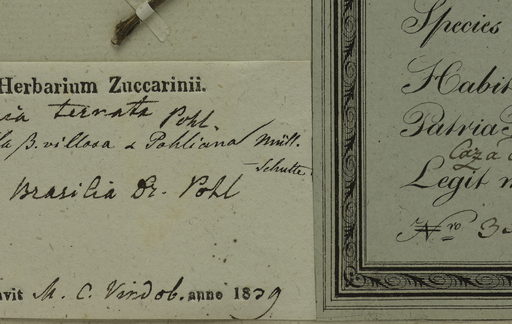 Herbarium Zuccarinii.
ternata Pohl.
β. villosa & Pohliana Müll.
Brasilia Dr. Pohl
M. C. Vindob. anno 1839
Species
Habit
Patria
Legit
Nro 3